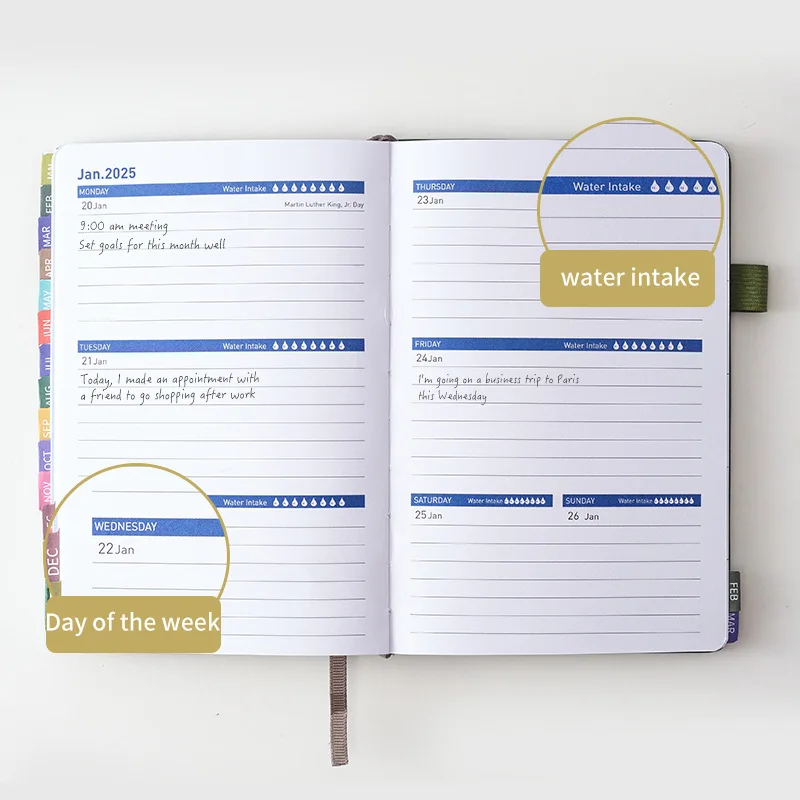 Jan.2025
MONDAY Water Intake
20Jan Martin Luther King, Jr. Day
9:00 am meeting
Set goals for this month well
TUESDAY Water Intake
21Jan
Today, I made an appointment with
a friend to go shopping after work
Water Intake
WEDNESDAY
22Jan
Day of the week
THURSDAY
23Jan
Water Intake
water intake
FRIDAY Water Intake
24Jan
I'm going on a business trip to Paris
this Wednesday
SATURDAY Water Intake
25Jan
SUNDAY Water Intake
26 Jan
JAN
FEB
MAR
APR
MAY
JUN
JUL
AUG
SEP
OCT
NOV
DEC
FEB
MAR